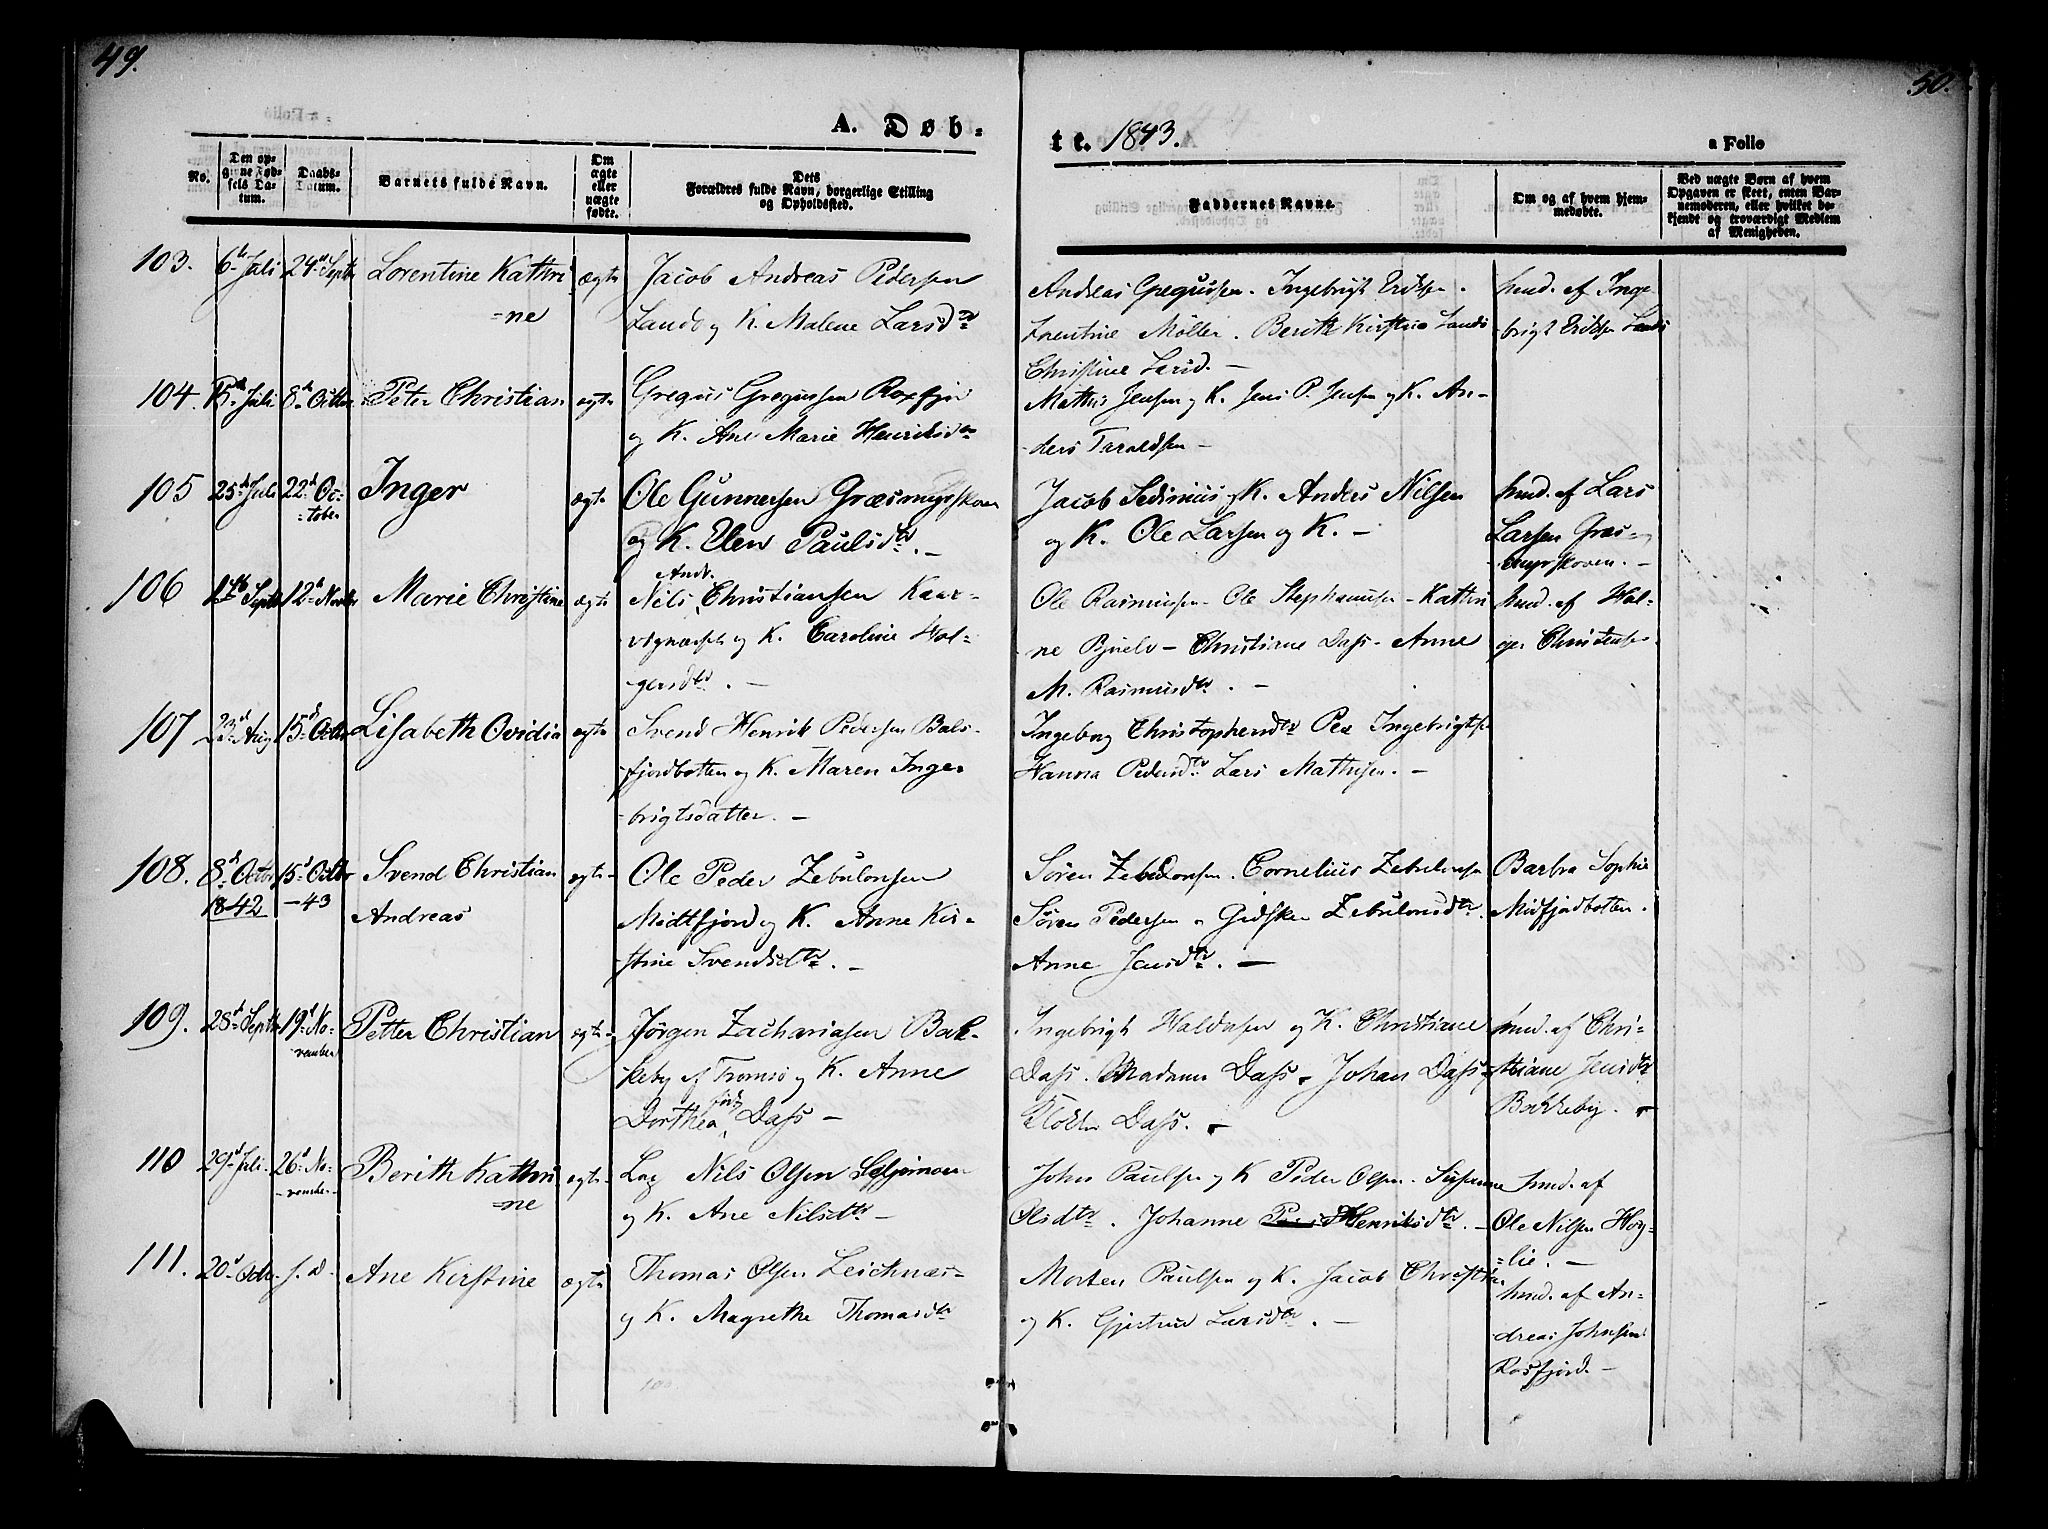 49.
50.
A. Døb-
te. 1843.
a Folio
No.
Den op-
givne Fød-
sels Da-
tum.
Daabs-
Datum.
Barnets fulde Navn.
Om
ægte
eller
uægte
fødte.
Dets
Forældres fulde Navn, borgerlige Stilling
og Opholdssted.
Faddernes Navne.
Om og af hvem hjem-
medøbte.
Ved uægte Børn af hvem
Opgaven er skeet, enten Bar-
nemoderen, eller hvilket be-
kjendt og troværdigt Medlem
af Menigheden.
103. 6te Juli 24de Septr Lorentine Kathri- ægte Jacob Andreas Pedersen
=ne
Sand og K. Malene Larsdtr
Andreas Gregusen. Ingebrigt Eriksen.
Lorentine Möller. Berith Kirstine Sands
Christine Larsd. -
hmd. af Inge
brigt Eriksen Sands
104. 15de Juli 8de Octbr Peter Christian ægte Gregus Gregussen Rosfjor
og K. Ane Marie Henriksdtr
Mathis Jensen og K. Jens P. Jensen og K. An-
ders Taraldsen -
105 25de Juli 22de Oc-
=tober
Inger ægte Ole Gunnersen Græsmyrskoven
og K. Elen Paulsdtr. -
Jacob Sedinius og K. Anders Nilsen
og K. Ole Larsen og K. -
hmd. af Lars
Larsen Græs-
myrskoven. -
106 Septr 12te Novbr Marie Christine ægte Nils Andr. Christiansen Kaar-
vignæsset og K. Caroline Hol-
gersdtr. -
Ole Rasmussen - Ole Stephansen - Kathri
ne Bjuelv - Christiane Dass - Anne
M. Rasmusdtr. -
hmd. af Hol-
ger Christensen.
107 23de Aug 15de Octbr Lisabeth Ovidia ægte Svend Henrik Pedersen Bals-
fjordbotten og K. Maren Inge-
brigtsdatter. -
Ingeborg Christophersdtr Per Ingebrigtsen
Hanna Pedersdtr Lars Mathisen. -
108. 8de Octbr
1842
15de Octbr
-43
Svend Christian
Andreas
ægte- Ole Peder Zebulonsen
Midtfjord og K. Anne Kir-
stine Svendsdtr. -
Sören Zebulonsen. Cornelius Zebulonsen
Sören Pedersen - Gidsken Zebulonsdtr.
Anne Jensdtr. -
Barbra Sophie
Midfjordbotten.
109. 28de Septbr 19de No-
vember
Petter Christian ægte- Jörgen Zachariasen Bak-
keby af Tromsö og K. Anne
Dorthea född Dass -
Ingebrigt Haldorsen og K. Christiane
Dass. Madame Dass - Johan Dass
Dass. -
hmd. af Chri-
stiane Jensdtr
Bakkeby. -
110 29de Juli. 26de No-
-vember-
Berith Kathri
=ne
ægte- Lap Nils Olsen
og K. Ane Nilsdtr -
John Paulsen og K Peder Olsen - Susanne
Olsdtr. Johanne Henriksdtr. -
hmd. af
Ole Nilsen Hög-
=lie. -
111. 20de Octbr. s. D. Ane Kirstine ægte Thomas Olsen Leichnæs-
og K. Magrethe Thomasdtr
Morten Paulsen og K. Jacob Christian
og K. Gjertrud Larsdtr. -
hmd. af An-
dreas Johnsen
Rosfjord. -